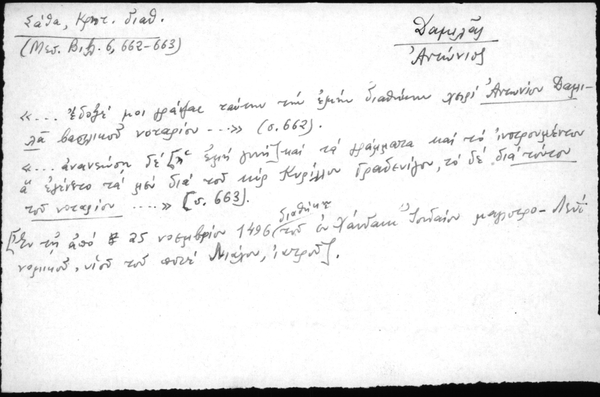 Σάθα, Κρητ. διαθ.
(Μεσ. Βιβλ. 6, 662-663)
Δαμιλᾶς
Ἀντώνιος
«... ἔδοξέ μοι γράψαι ταύτην τὴν ἐμὴν διαθήκην χειρὶ Ἀντωνίου Δαμι-
λᾶ βασιλικοῦ νοταρίου ...» (σ. 662).
«... ἀνανεώσῃ δὲ [ἡ ἐμὴ γυνὴ] καὶ τὰ γράμματα καὶ τὸ ἰνστρουμέντον
ἃ ἐγένετο τὰ μὲν διὰ τοῦ κὺρ Κυρίλλου Γραδενίγου, τὸ δὲ διὰ τούτου
τοῦ νοταρίου ....» (σ. 663).
[Ἐν τῇ ἀπὸ 25 νοεμβρίου 1496 διαθήκῃ τοῦ ἐν Χάνδακι Ἰουδαίου μαγιστρο-
νομικοῦ, υἱοῦ τοῦ ποτὲ ἰατροῦ].